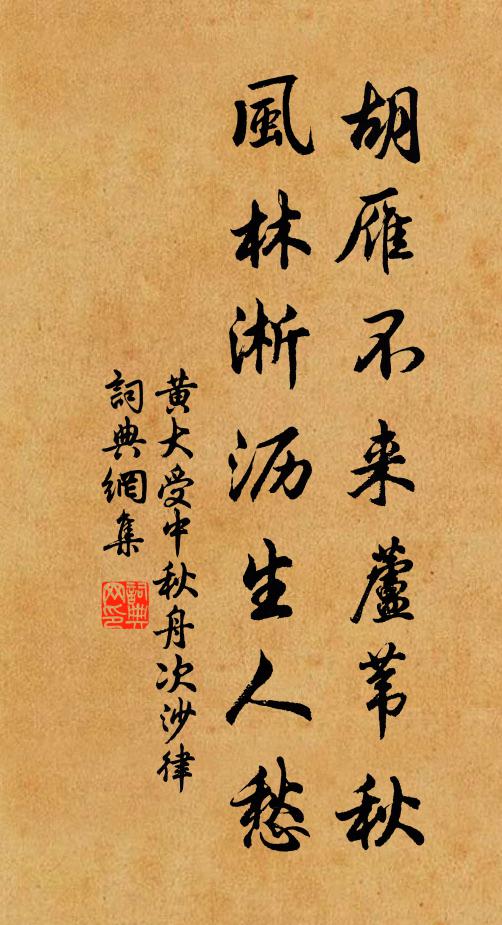 胡雁不来蘆苇秋
風林淅沥生人愁
黄大受中秋舟次沙律
詞典網集
詞典
网印